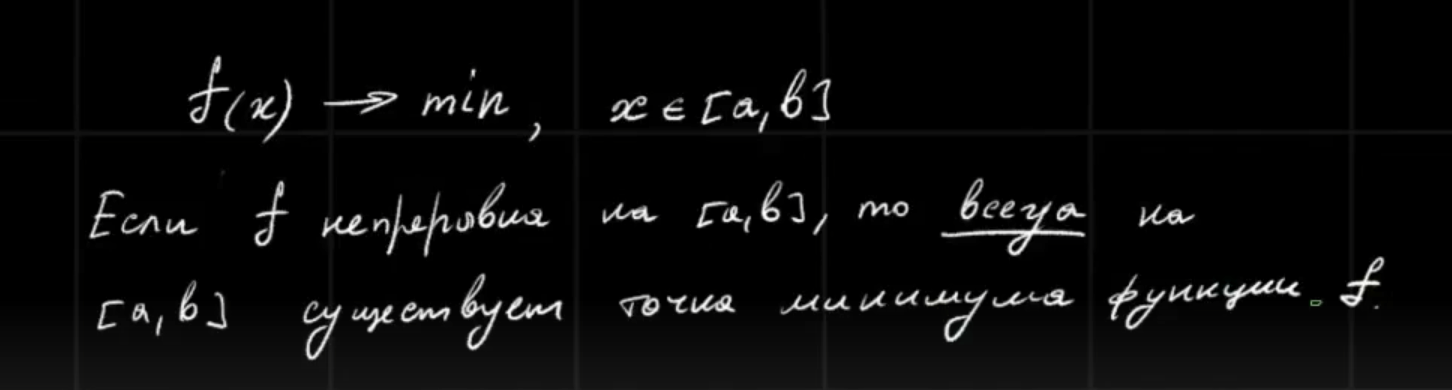 f(x) → min, x ∈ [a, b]
Если f непрерывна на [a, b], то всегда на
[a, b] существует точка минимума функции f.